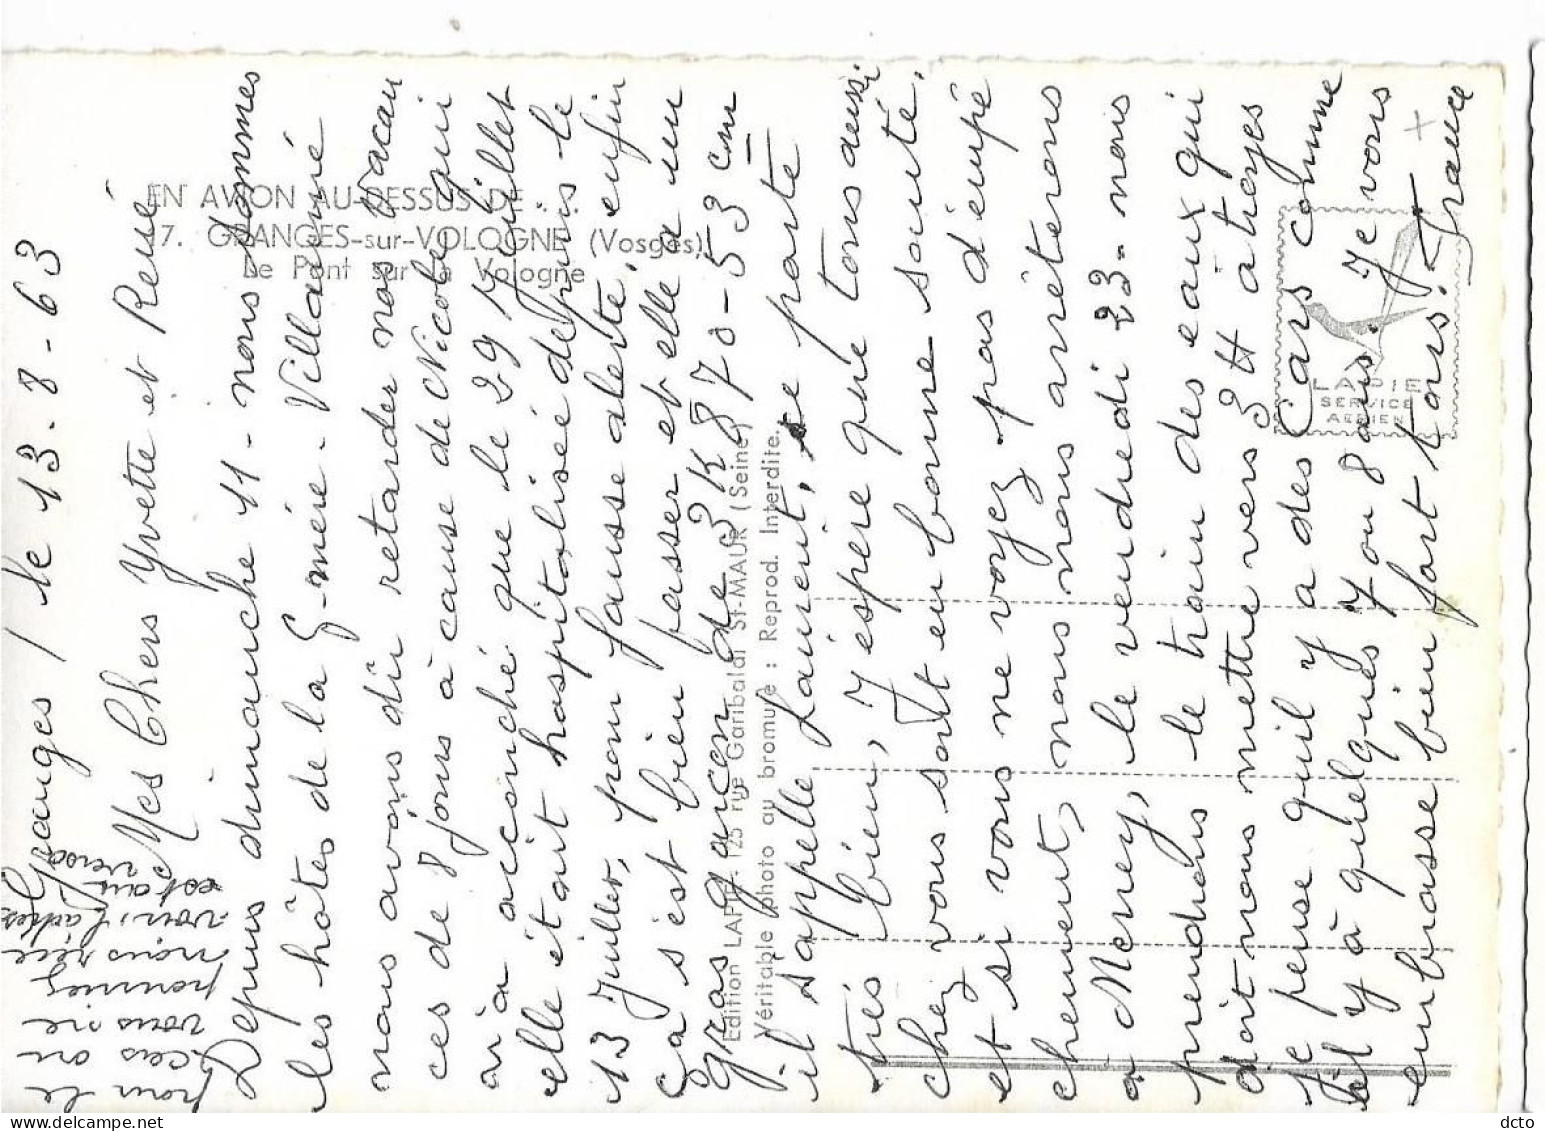 Granges / le 13-8-63
Mes Chers Yvette et René
Depuis dimanche 11 - nous sommes
les hôtes de la G-mère. Villaumé
nous avons dû retarder nos vacan
ces de 8 jours à cause de Nicole qui
à accouché que le 29 Juillet
elle était hospitalisée depuis le
13 Juillet, pour fausse alerte, enfin
ça s'est bien passer et elle a un
gros garçon de 3K870-53 cm
il s'appelle Laurent, se porte
très bien, J'espère que tous aussi
chez vous sont en bonne santé,
et si vous ne voyez pas d'empé
chement, nous nous arrêterons
à Merrey, le vendredi 23 - nous
prendrons le train des eaux qui
doit nous mettre vers 3H à
Je pense qu'il y a des Cars comme
il y à quelques 7 ou 8 ans. Je vous
embrasse bien fort tous.
pour le
cas ou
vous ne
pourriez
nous rece
voir, l'adres
est au
verso
EN AVION AU-DESSUS DE . . .
17. GRANGES-sur-VOLOGNE (Vosges)
Le Pont sur la Vologne
Edition LAPIE 125 rue Garibaldi St-MAUR (Seine)
Véritable photo au bromure : Reprod. Interdite.
LAPIE
SERVICE
AERIEN
dcto